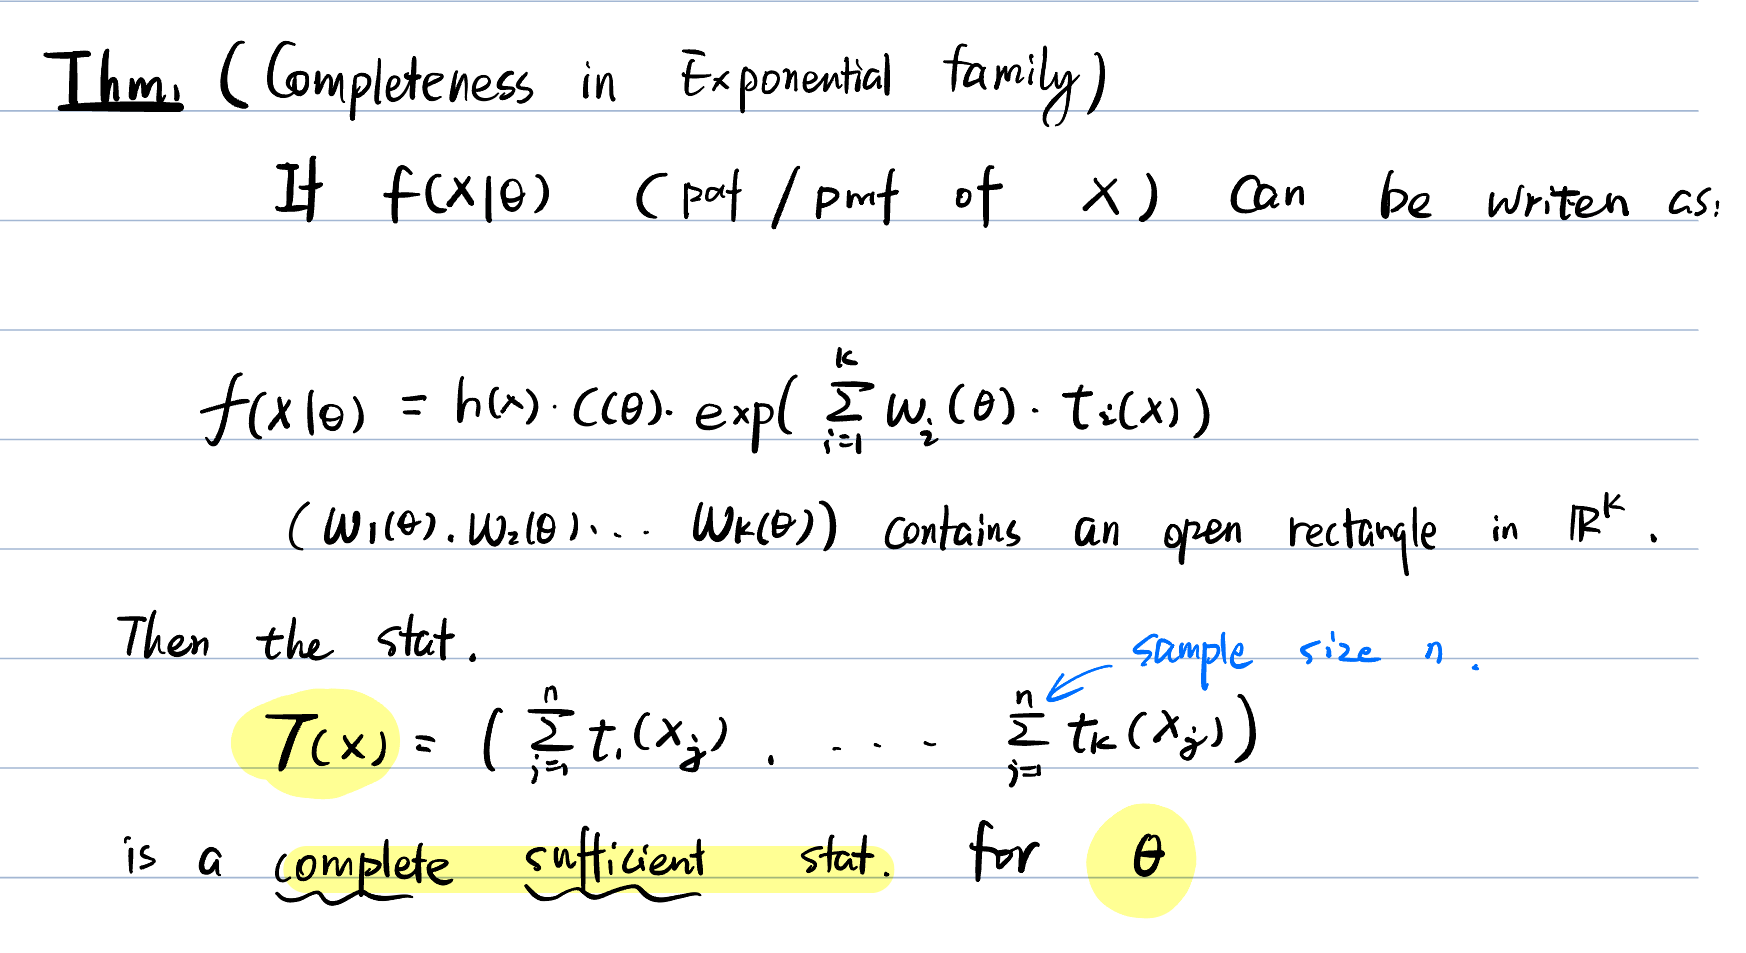 Thm. (Completeness in Exponential family)
If f(x|θ) (pdf / pmf of X) can be writen as:
f(x|θ) = h(x)· C(θ)· exp( Σ_{i=1}^{k} w_i(θ) · t_i(x) )
(w_1(θ), w_2(θ), ... w_k(θ)) contains an open rectangle in ℝ^k .
Then the stat.
sample size n .
T(x) = ( Σ_{j=1}^{n} t_1(X_j) , . . . . Σ_{j=1}^{n} t_k(X_j) )
is a complete sufficient stat. for θ